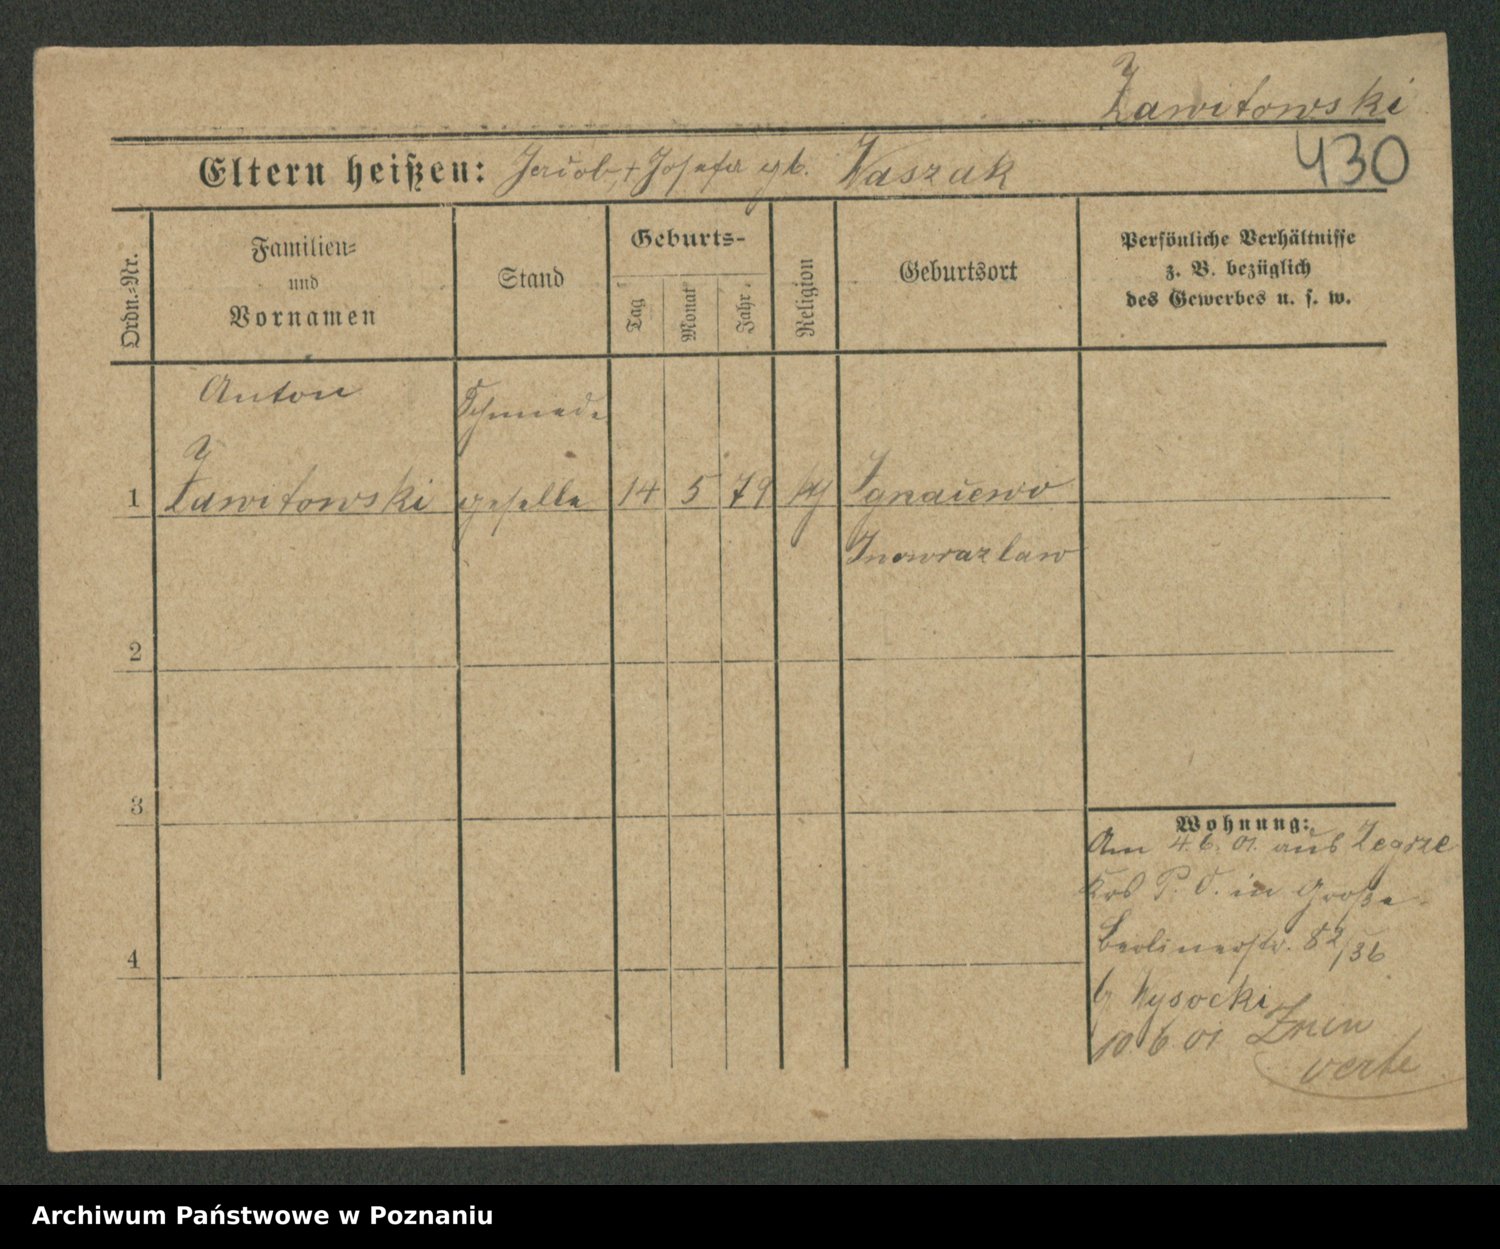 Zawitowski
430
Eltern heißen: Jacob + Josefa gb. Waszak
Ordn.-Nr.
Familien- und Vornamen
Stand
Geburts-
Tag
Monat
Jahr
Religion
Geburtsort
Persönliche Verhältnisse
z. B. bezüglich
des Gewerbes u. s. w.
Anton Schmiede
1 Zawitowski geselle 14 5 79 Ignacewo
Inowrazlaw
2
3
Wohnung:
Am 4.6.01. aus Zegrze
Krs P. O. in Große
4
Berlinerstr. 82/36
b Wysocki
10.6.01 Znin
verte
Archiwum Państwowe w Poznaniu